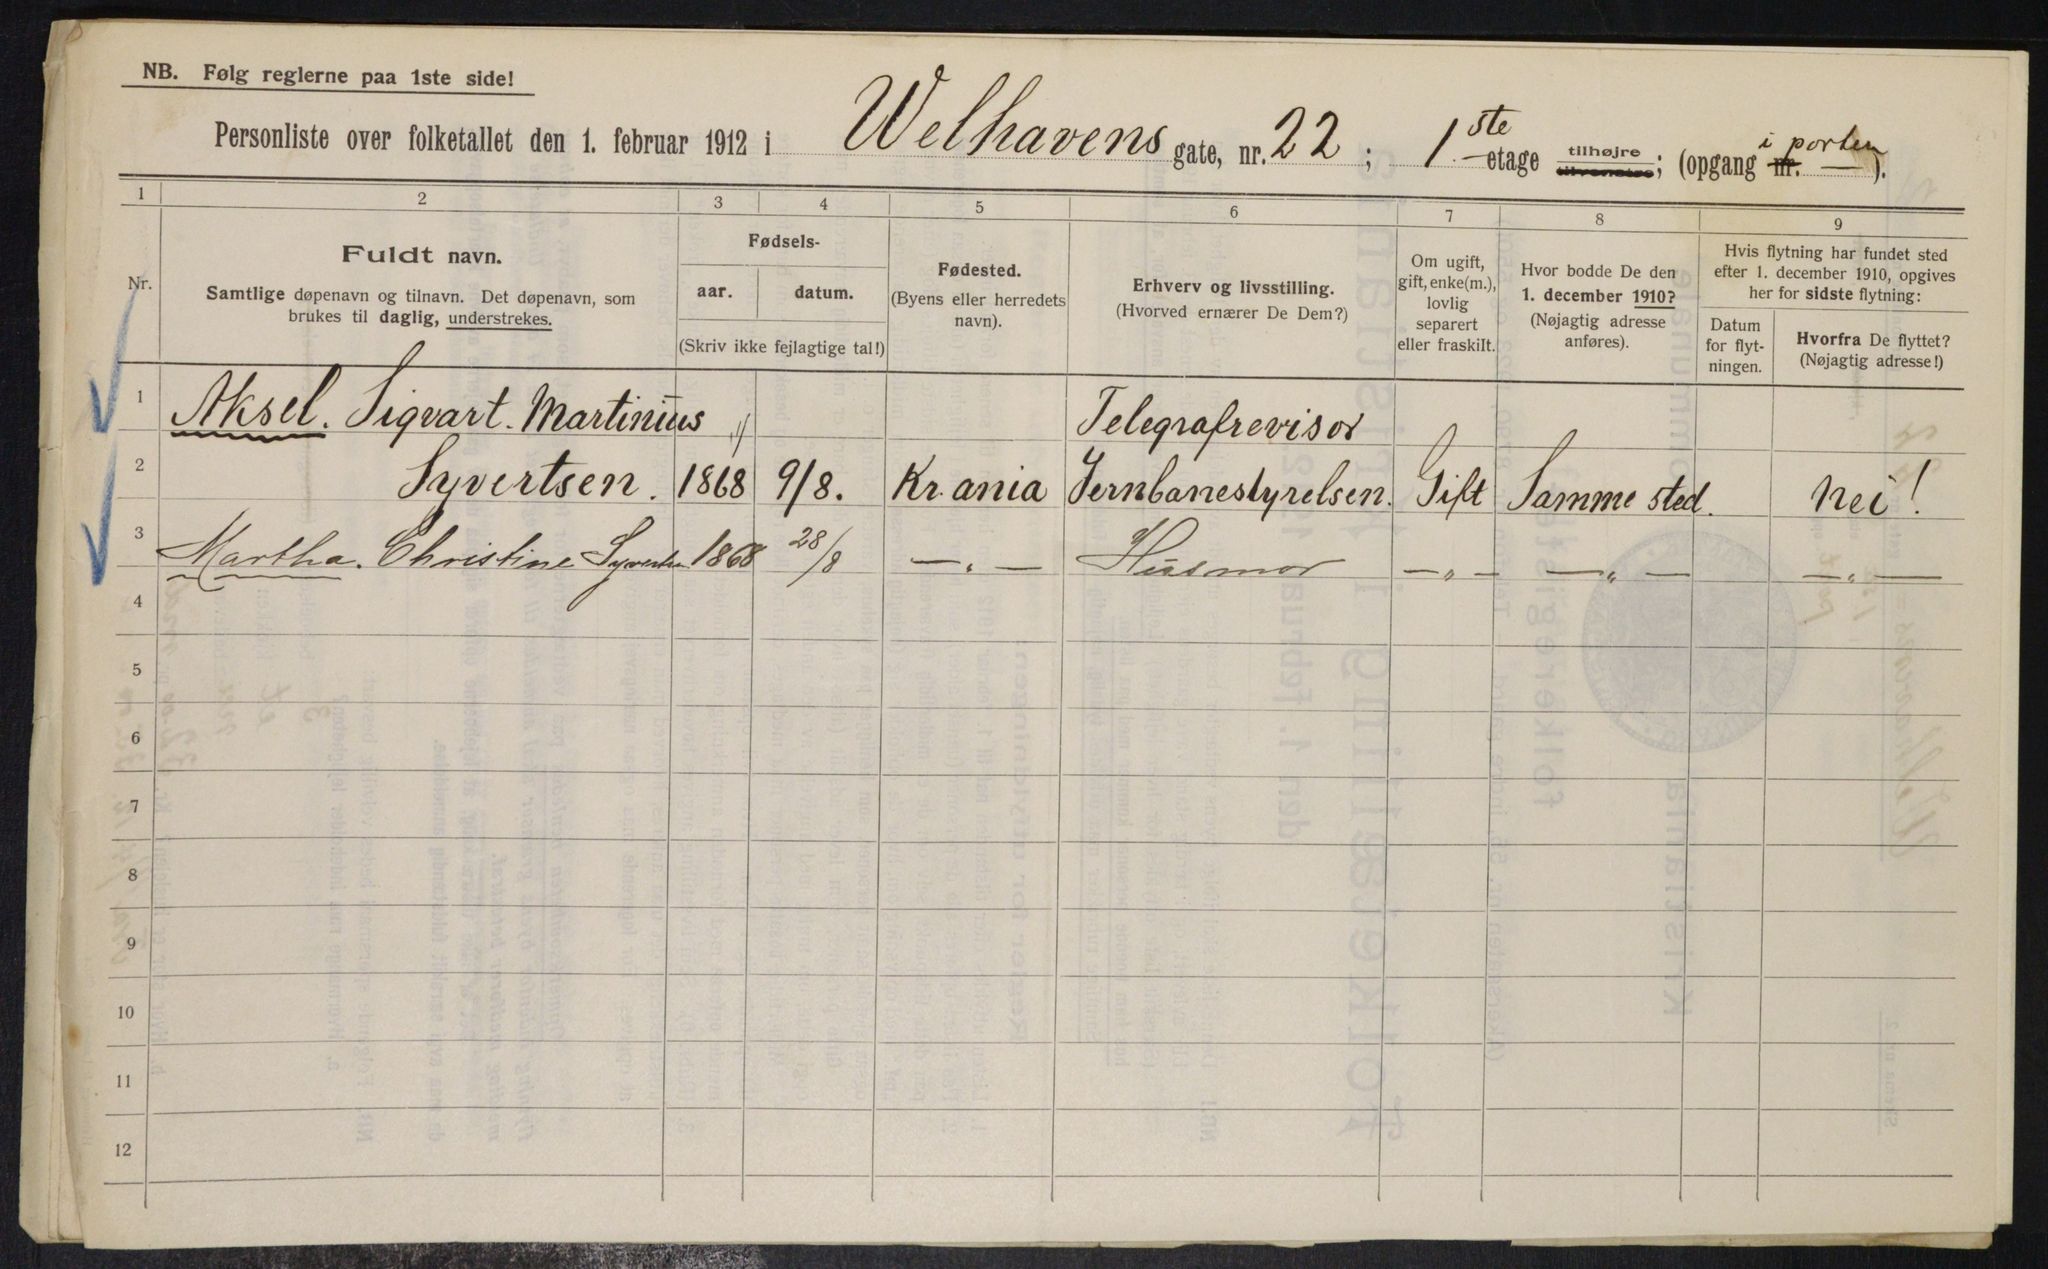 NB. Følg reglerne paa 1ste side!
Personliste over folketallet den 1. februar 1912 i Welhavens gate, nr. 22; 1ste etage tilhøjre tilvenstre; (opgang nr. i porten — ).
1 2 3 4 5 6 7 8 9
Nr.
Fuldt navn.
Samtlige døpenavn og tilnavn. Det døpenavn, som
brukes til daglig, understrekes.
Fødsels-
aar. datum.
(Skriv ikke fejlagtige tal!)
Fødested.
(Byens eller herredets
navn).
Erhverv og livsstilling.
(Hvorved ernærer De Dem?)
Om ugift,
gift, enke(m.),
lovlig
separert
eller fraskilt.
Hvor bodde De den
1. december 1910?
(Nøjagtig adresse
anføres).
Hvis flytning har fundet sted
efter 1. december 1910, opgives
her for sidste flytning:
Datum
for flyt-
ningen.
Hvorfra De flyttet?
(Nøjagtig adresse!)
1 Aksel. Sigvart. Martinius Telegrafrevisor
2 Syvertsen. 1868 9/8. Kr.ania Jernbanestyrelsen. Gift Samme sted. Nei!
3 Martha. Christine 1868 28/8 —„— Husmor —„— —„— —„—
4
5
6
7
8
9
10
11
12